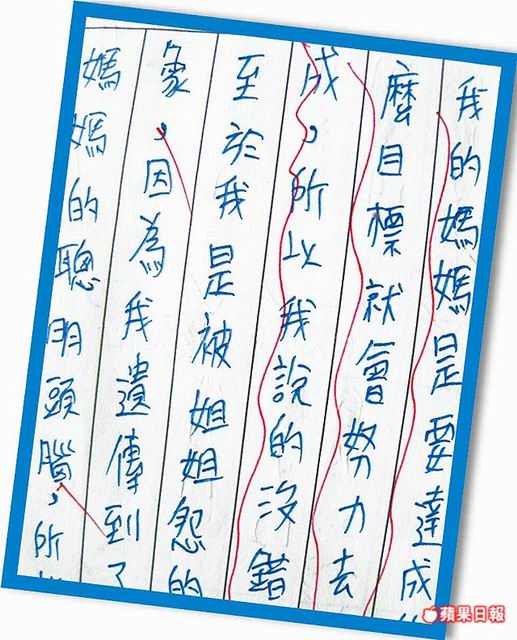 我的媽媽是要達成
麼目標就會努力去
成，所以我說的沒錯
至於我是被姐姐怨的
象，因為我遺傳到了
媽媽的聰明頭腦，所
蘋果日報